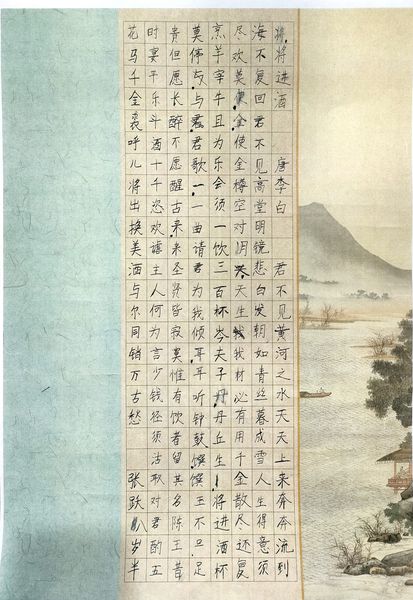 将将进酒 唐李白 君不见黄河之水天天上来奔奔流到
海不复回君不见高堂明镜悲白发朝如青丝暮成雪人生得意须
尽欢莫金使金樽空对月天天生我我材必有用千金散尽还复
烹羊宰牛且为乐会须一饮三百杯岑夫子丹丹丘生将进酒杯
莫停与与君君歌一一曲请君为我倾耳耳听钟鼓馔馔玉不足足
贵但愿长醉不愿醒古来来圣贤皆寂寞惟有饮者留其名陈王昔
时宴平乐斗酒十千恣欢谑主人何为言少钱径须沽取对君酌五
花马千金裘呼儿将出换美酒与尔同销万古愁 张跃八岁半